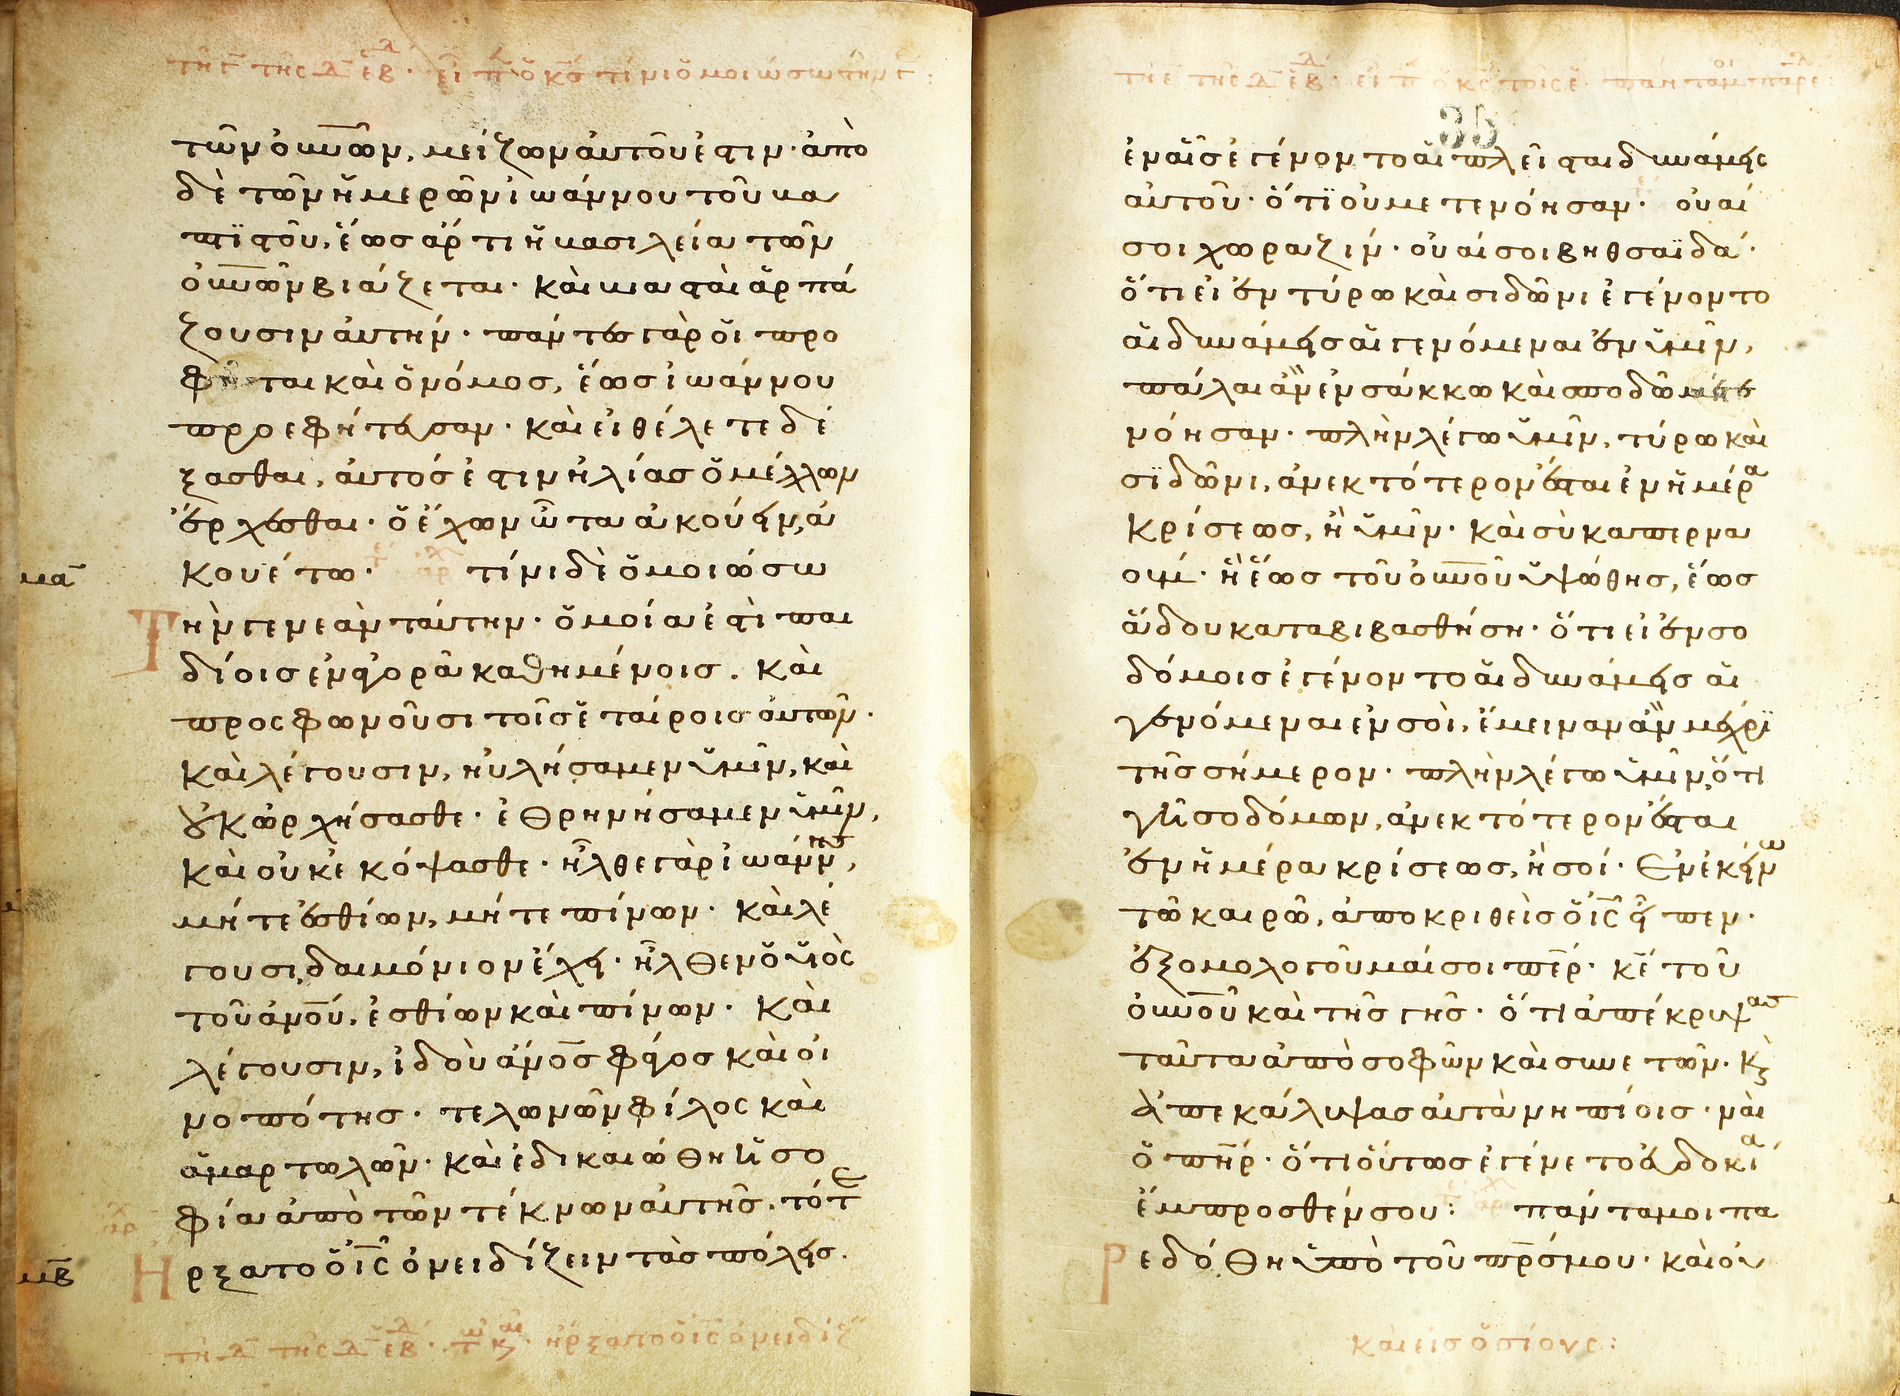 τῆ γ̅ τῆς δ̅ ἑβδ· εἶπ ὁ κς τίνι ὁμοιώσω τὴν γ̅:
τῶν οὐνῶν, μείζων ἀυτοῦ ἐστιν· ἀπὸ
δὲ τῶν ἡμερῶν ἰωάννου τοῦ βα
πτϊστοῦ, ἕως ἄρτι ἡ βασιλεία τῶν
οὐνῶν βιάζεται· καὶ βιασταὶ ἁρπά
ζουσιν ἀυτήν· πάντες γὰρ ὁι προ
φῆται καὶ ὁ νόμος, ἕως ἰωάννου
προεφήτευσαν· καὶ εἰ θέλετε δέ
ξασθαι, ἀυτός ἐστιν ἠλίας ὁ μέλλων
ἔρχεσθαι· ὁ ἔχων ὦτα ἀκούειν, ἀ
κουέτω· τέ ἀρχ τίνι δὲ ὁμοιώσω
μα
Τὴν γενεὰν ταύτην· ὁμοία ἐστὶ παι
δίοις ἐν ἀγορᾶ καθημένοις. καὶ
προσφωνοῦσι τοῖς ἑταίροις ἀυτῶν·
καὶ λέγουσιν, ηὐλήσαμεν ὑμῖν, καὶ
οὐκ ὠρχήσασθε· ἐθρηνήσαμεν ὑμῖν,
καὶ οὐκ ἐκόψασθε· ἦλθε γὰρ ἰωάννης,
μήτε ἐσθίων, μήτε πίνων· καὶ λέ
γουσι, δαιμόνιον ἔχει· ἦλθεν ὁ ὑιὸς
τοῦ ἀνου, ἐσθίων καὶ πίνων· καὶ
λέγουσιν, ἰδοὺ ἄνος φάγος καὶ οἰ
νοπότης· τελωνῶν φίλος καὶ
ἁμαρτωλῶν· καὶ ἐδικαιώθη ἡ σο
φία ἀπὸ τῶν τέκνων ἀυτῆς. τότε
ἀρχ
μβ
Ηρξατο ὁ ἰς ὀνειδίζειν τὰς πόλεις.
τῆ δ̅ τῆς δ̅ ἑβδ· τῶ κ αι· ἤρξατο ὁ ἰς ὀνειδίζ
τῆ ε̅ τῆς δ̅ ἑβδ· εἶπ ὁ κς τοῖς ἑ· πάντα μοι παρε:
35
ἐν αἷς ἐγένοντο αἱ πλεῖσται δυνάμεις
ἀυτοῦ· ὅτϊ οὐ μετενόησαν· οὐαί
σοι χωραζίν· οὐαί σοι βηθσαϊδά·
ὅτι εἰ ἐν τύρω καὶ σιδῶνι ἐγένοντο
αἱ δυνάμεις αἱ γενόμεναι ἐν ὑμῖν,
πάλαι ἂν ἐν σάκκω καὶ σποδῶ μετε
νόησαν· πλὴν λέγω ὑμῖν, τύρω καὶ
σϊδῶνι, ἀνεκτότερον ἔσται ἐν ἡμέρα
κρίσεως, ἢ ὑμῖν· καὶ σὺ καπερνα
ούμ· ἡ ἕως τοῦ οὐνοῦ ὑψώθης, ἕως
ἅδου καταβιβασθήση· ὅτι εἰ ἐν σο
δόμοις ἐγένοντο αἱ δυνάμεις αἱ
γενόμεναι ἐν σοὶ, ἔμειναν ἂν μέχρϊ
τῆς σήμερον· πλὴν λέγω ὑμῖν, ὅτι
γῆ σοδόμων, ἀνεκτότερον ἔσται
ἐν ἡμέρα κρίσεως, ἢ σοί· Ἐν ἐκείνω
τῶ καιρῶ, ἀποκριθεὶς ὁ ἰς εἶπεν·
ἐξομολογοῦμαί σοι περ· κε τοῦ
οὐνοῦ καὶ τῆς γῆς· ὅτι ἀπέκρυψας
ταῦτα ἀπὸ σοφῶν καὶ συνετῶν· κὶ
ἀπεκάλυψας ἀυτὰ νηπίοις· ναὶ
ὁ πηρ· ὅτι ὅυτως ἐγένετο ἐυδοκία
ἔμπροσθέν σου: τέ ἀρχ πάντα μοι πα
Ρεδόθη ὑπὸ τοῦ πρς μου· καὶ οὐ
καὶ εἰς ὁσίους: